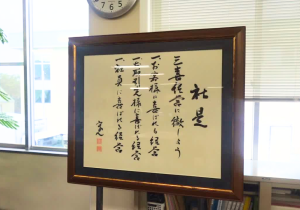 社是
三喜経営に徹しよう
一、お客様に喜ばれる経営
一、お取引先様に喜ばれる経営
一、社員に喜ばれる経営
7 6 5